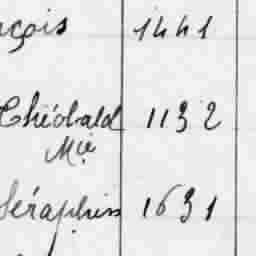 çois 1441
Théobald 1132
Mie
Séraphin 1631